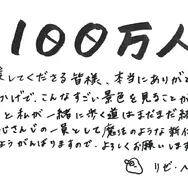 100万人
援してくださる皆様、本当にありがと
かげで、こんなすごい景色を見ることが
と私が一緒に歩く道はまだまだ続
じさんじの一員として魔法のような新体
ようがんばりますので、よろしくお願いします
リゼ・ヘ